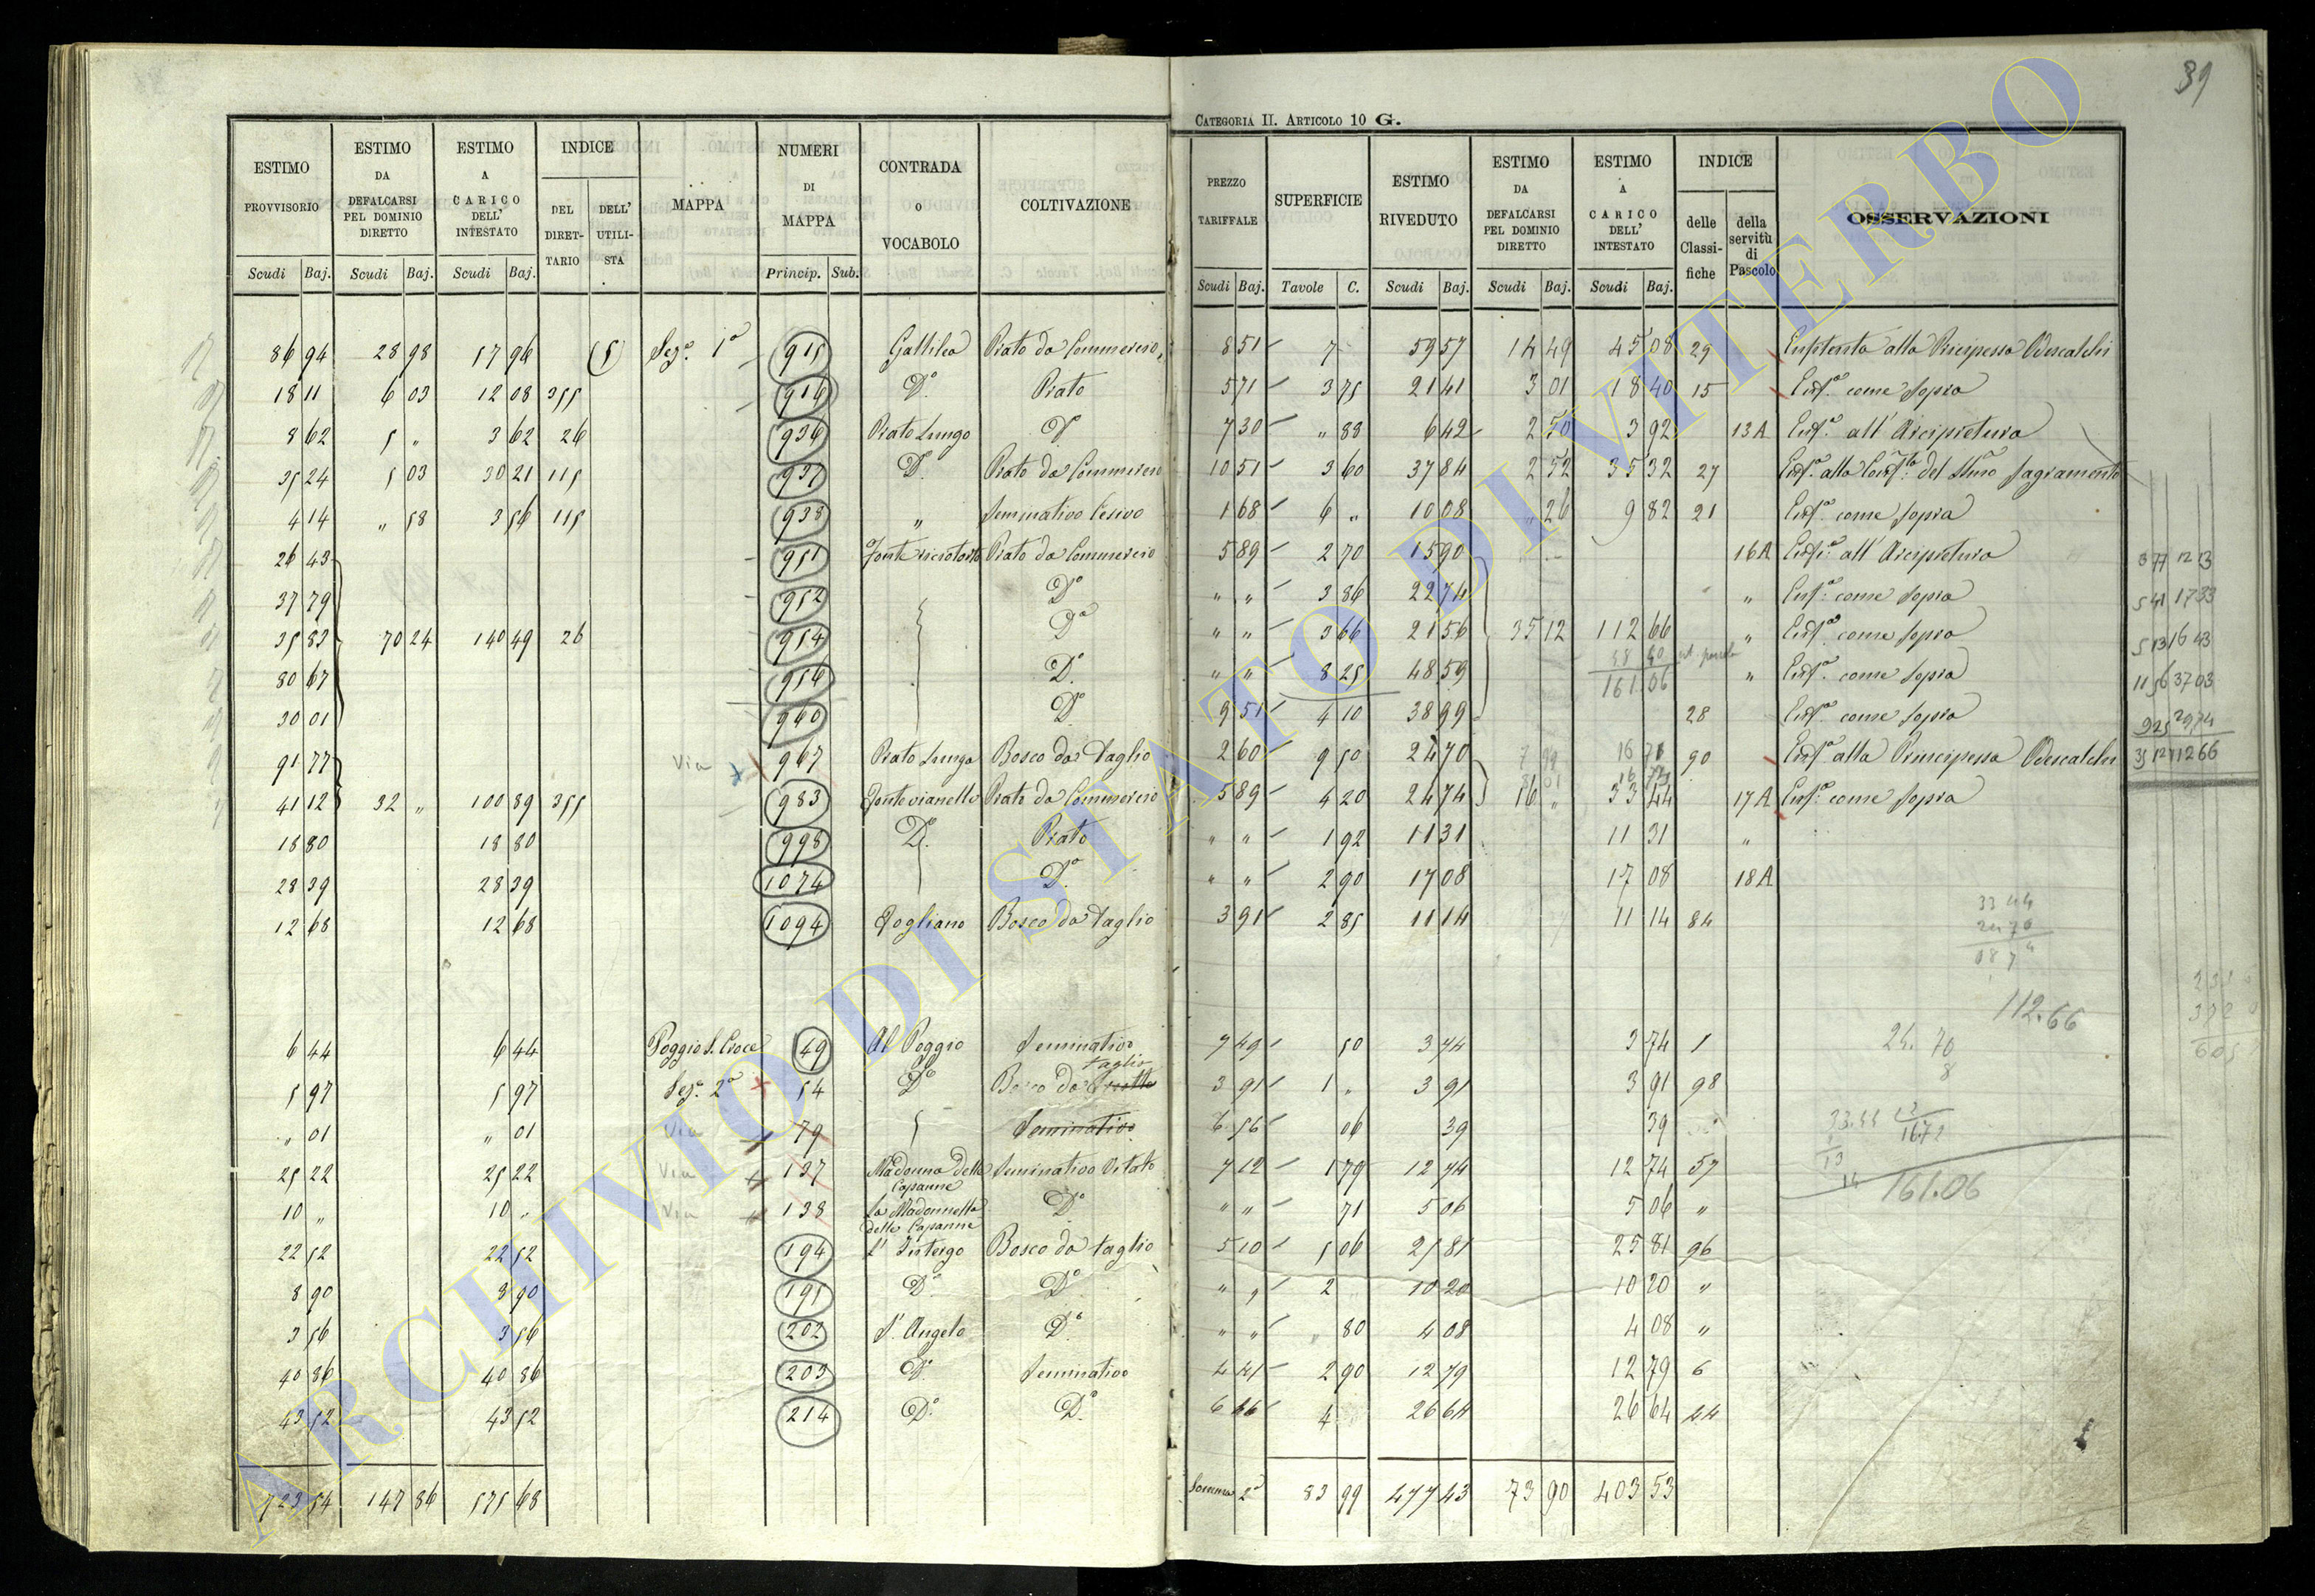 39
CATEGORIA II. ARTICOLO 10 G.
ESTIMO PROVVISORIO Scudi Baj. ESTIMO DA DEFALCARSI PEL DOMINIO DIRETTO Scudi Baj. ESTIMO A CARICO DELL' INTESTATO Scudi Baj. INDICE DEL DIRETTARIO DELL' UTILISTA MAPPA NUMERI DI MAPPA Princip. Sub. CONTRADA O VOCABOLO COLTIVAZIONE
PREZZO TARIFFALE Scudi Baj. SUPERFICIE Tavole C. ESTIMO RIVEDUTO Scudi Baj. ESTIMO DA DEFALCARSI PEL DOMINIO DIRETTO Scudi Baj. ESTIMO A CARICO DELL' INTESTATO Scudi Baj. INDICE delle Classifiche della servitù di Pascolo OSSERVAZIONI
86 94 28 98 57 96 Sezª. 1ª 915 Gallilea Prato da Commercio 8 51 7 59 57 14 49 45 08 29 alla Principessa Odescalchi
18 11 6 03 12 08 355 916 Dº Prato 5 71 3 75 21 41 3 01 18 40 15 Enfª. come sopra
8 62 5 „ 3 62 26 936 Prato Lungo Dº 7 30 „ 88 6 42 2 50 3 92 13A Enfª. all' Arcipretura
35 24 5 03 30 21 115 937 Dº Prato da Commercio 10 51 3 60 37 84 2 52 35 32 27 Enfª. alla del Sagramento
4 14 „ 58 3 56 115 938 „ Seminativo Cesivo 1 68 6 „ 10 08 „ 26 9 82 21 Enfª. come sopra
26 43 951 Prato da Commercio 5 89 2 70 15 90 16A Enfª. all' Arcipretura 3 77 12 13
37 79 952 Dº „ „ 3 86 22 74 „ Enfª. come sopra 5 41 17 33
35 83 70 24 140 49 26 954 Dº „ „ 3 66 21 56 35 12 112 66 „ Enfª. come sopra 5 13 16 43
80 67 956 Dº „ „ 8 25 48 59 48 40 161.06 „ Enfª. come sopra 11 56 37 03
30 01 960 Dº 9 51 4 10 38 99 28 Enfª. come sopra 9 25 29 74
91 77 Via 967 Prato Lungo Bosco da Taglio 2 60 9 50 24 70 90 Enfª. alla Principessa Odescalchi 35 12 112 66
41 12 32 „ 100 89 355 983 Fontevianello Prato da Commercio 5 89 4 20 24 74 16 „ 33 44 17A Enfª. come sopra
18 80 18 80 998 Dº. Prato „ „ 1 92 11 31 11 31 „
28 39 28 39 1074 Dº „ „ 2 90 17 08 17 08 18A
12 68 12 68 1094 Fogliano Bosco da Taglio 3 91 2 85 11 14 11 14 84
33 44
24 70
112.66
6 44 6 44 Poggio S. Croce 49 Al Poggio Seminativo 7 49 50 3 74 3 74 1 24. 70
5 97 5 97 Sezª. 2ª 54 Dº Bosco da taglio 3 91 1 „ 3 91 3 91 98
„ 01 „ 01 Via 79 Seminativo 6 56 06 39 39
25 22 25 22 Via 137 Madonna delle Capanne Seminativo Vitato 7 12 1 79 12 74 12 74 57
10 „ 10 „ Via 138 La Madonnella delle Capanne Dº „ „ 71 5 06 5 06 „ 161.06
22 52 22 52 194 Bosco da taglio 5 10 5 06 25 81 25 81 96
8 90 8 90 195 Dº Dº „ „ 2 10 20 10 20 „
3 56 3 56 202 S. Angelo Dº „ „ „ 80 4 08 4 08 „
40 86 40 86 203 Dº Seminativo 4 41 2 90 12 79 12 79 6
43 52 43 52 214 Dº. Dº. 6 66 4 26 64 26 64 44
723 54 147 86 575 68 Somma 2ª 83 99 477 43 73 90 403 53
ARCHIVIO DI STATO DI VITERBO